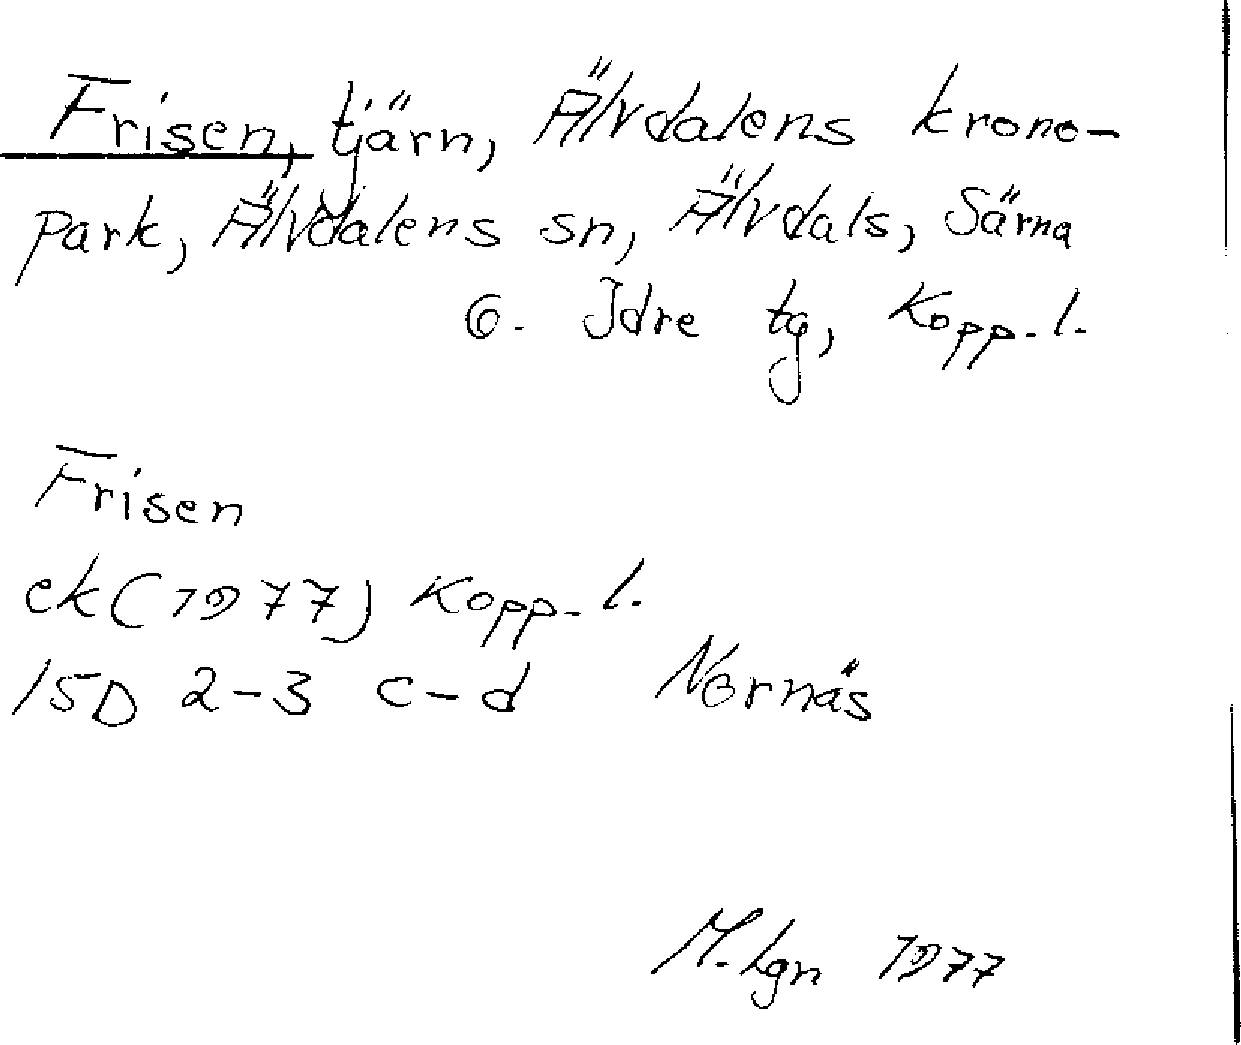 Frisen, tjärn, Älvdalens krono-
park, Älvdalens sn, Älvdals, Särna
o. Idre tg, Kopp. l.
Frisen
ek (1977) Kopp. l.
15D 2-3 c-d Nornäs
M. Lgn 1977